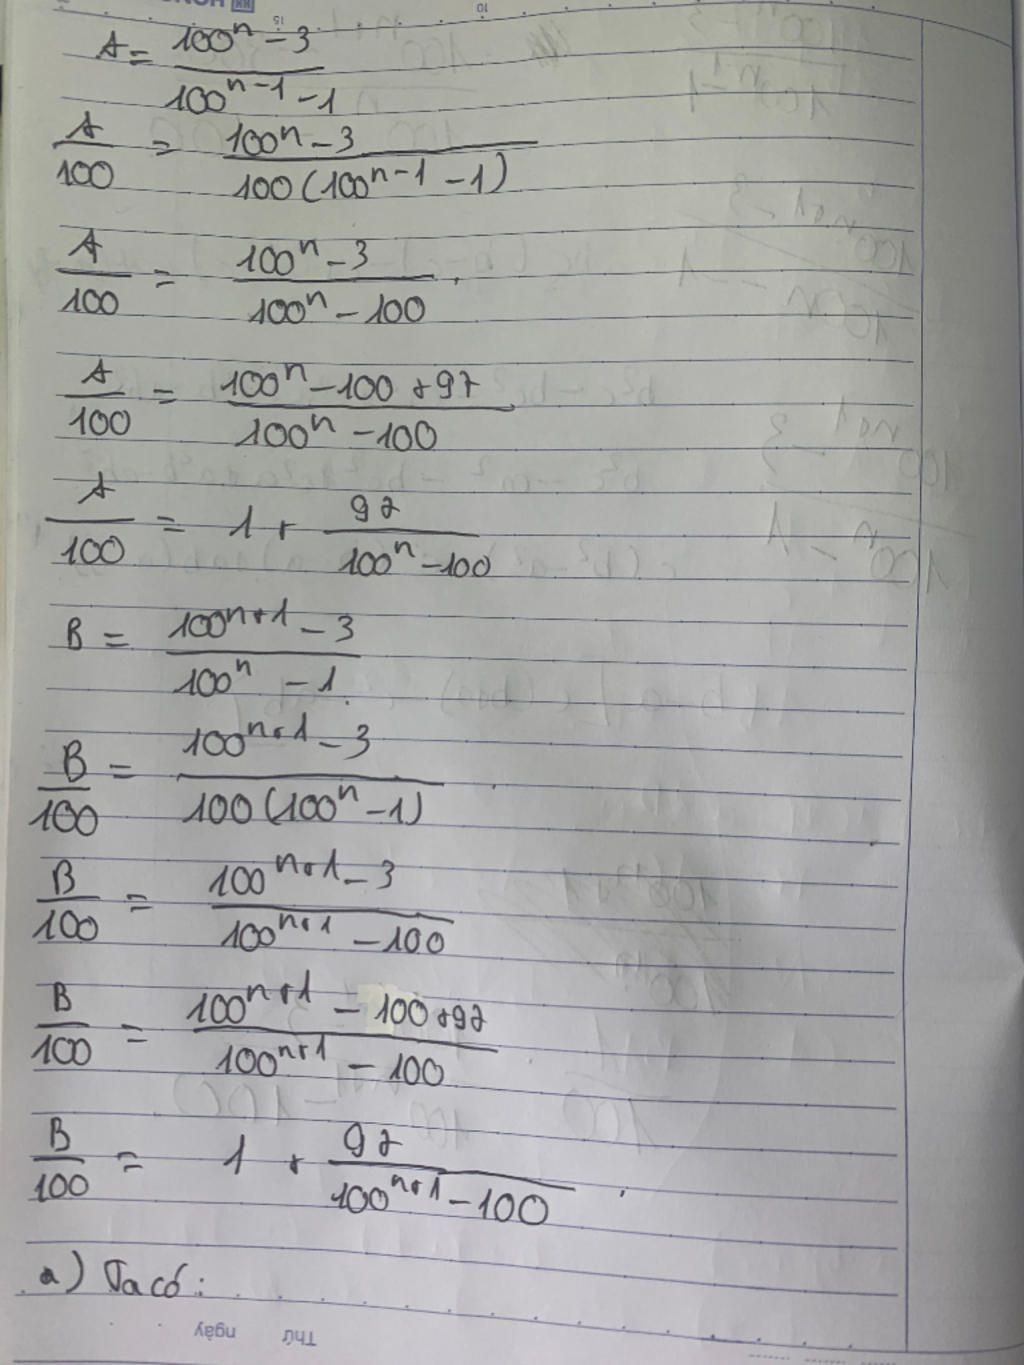 A = (100^n - 3)/(100^(n-1) - 1)
A/100 = (100^n - 3)/(100(100^(n-1) - 1))
A/100 = (100^n - 3)/(100^n - 100)
A/100 = (100^n - 100 + 97)/(100^n - 100)
A/100 = 1 + 97/(100^n - 100)
B = (100^(n+1) - 3)/(100^n - 1)
B/100 = (100^(n+1) - 3)/(100(100^n - 1))
B/100 = (100^(n+1) - 3)/(100^(n+1) - 100)
B/100 = (100^(n+1) - 100 + 97)/(100^(n+1) - 100)
B/100 = 1 + 97/(100^(n+1) - 100)
a) Ta có:
Thứ ngày